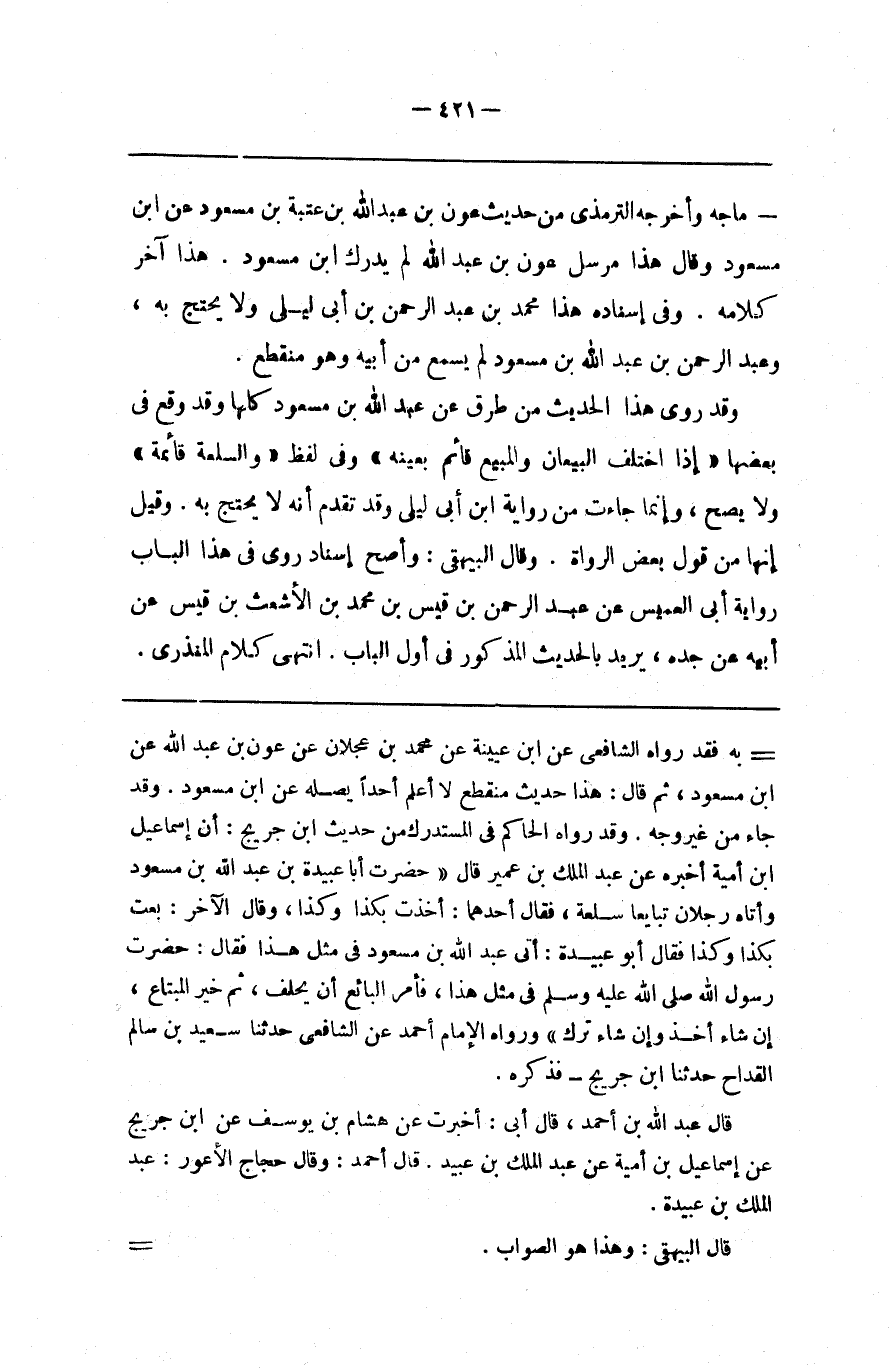 — ٤٢١ —
— ماجه وأخرجه الترمذى من حديث عون بن عبد الله بن عتبة بن مسعود عن ابن
مسعود وقال هذا مرسل عون بن عبد الله لم يدرك ابن مسعود . هذا آخر
كلامه . وفى إسناده هذا محمد بن عبد الرحمن بن أبى ليلى ولا يحتج به ،
وعبد الرحمن بن عبد الله بن مسعود لم يسمع من أبيه وهو منقطع .
وقد روى هذا الحديث من طرق عن عبد الله بن مسعود كلها وقد وقع فى
بعضها « إذا اختلف البيعان والمبيع قائم بعينه » وفى لفظ « والسلعة قائمة »
ولا يصح ، وإنما جاءت من رواية ابن أبى ليلى وقد تقدم أنه لا يحتج به . وقيل
إنها من قول بعض الرواة . وقال البيهقى : وأصح إسناد روى فى هذا الباب
رواية أبى العميس عن عبد الرحمن بن قيس بن محمد بن الأشعث بن قيس عن
أبيه عن جده ، يريد بالحديث المذكور فى أول الباب . انتهى كلام المنذرى .
= به فقد رواه الشافعى عن ابن عيينة عن محمد بن عجلان عن عون بن عبد الله عن
ابن مسعود ، ثم قال : هذا حديث منقطع لا أعلم أحداً يصله عن ابن مسعود . وقد
جاء من غير وجه . وقد رواه الحاكم فى المستدرك من حديث ابن جريج : أن إسماعيل
ابن أمية أخبره عن عبد الملك بن عمير قال « حضرت أبا عبيدة بن عبد الله بن مسعود
وأتاه رجلان تبايعا سلعة ، فقال أحدهما : أخذت بكذا وكذا ، وقال الآخر : بعت
بكذا وكذا فقال أبو عبيدة : أتى عبد الله بن مسعود فى مثل هذا فقال : حضرت
رسول الله صلى الله عليه وسلم فى مثل هذا ، فأمر البائع أن يحلف ، ثم خير المبتاع ،
إن شاء أخذ وإن شاء ترك » ورواه الإمام أحمد عن الشافعى حدثنا سعيد بن سالم
القداح حدثنا ابن جريج – فذكره .
قال عبد الله بن أحمد ، قال أبى : أخبرت عن هشام بن يوسف عن ابن جريج
عن إسماعيل بن أمية عن عبد الملك بن عبيد . قال أحمد : وقال حجاج الأعور : عبد
الملك بن عبيدة .
قال البيهقى : وهذا هو الصواب . =